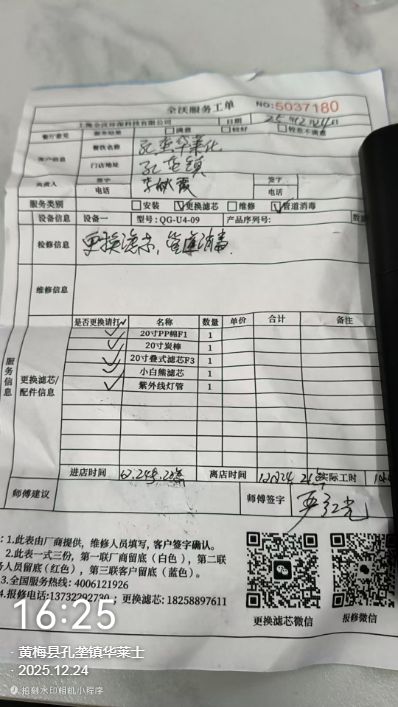 全沃服务工单 NO:5037180
上海全沃环保科技有限公司 日期 25年12月24日
餐厅意见 服务结果 □满意 □较好 □较不满意
客户信息 餐饮名称 孔垄华莱士
门店地址 孔垄镇
负责人 签字 签字
电话 电话
服务类别 □安装 ☑更换滤芯 □维修 ☑管道消毒
设备信息 设备一 型号: QG-U4-09 产品序列号:
检修信息 更换滤芯,管道消毒
维修信息
服务信息 更换滤芯/配件信息
是否更换请打✓ 名称 数量 单价 合计 备注
✓ 20寸PP棉F1 1
✓ 20寸炭棒 1
✓ 20寸叠式滤芯F3 1
✓ 小白熊滤芯 1
✓ 紫外线灯管 1
进店时间 离店时间 实际工时
师傅建议 师傅签字
: 1.此表由厂商提供, 维修人员填写, 客户签字确认。
2.此表一式三份, 第一联厂商留底(白色), 第二联
务人员留底(红色), 第三联客户留底(蓝色)。
3.全国服务热线: 4006121926
4.报修电话:13732292730 ; 更换滤芯: 18258897611
更换滤芯微信 报修微信
16:25
黄梅县孔垄镇华莱士
2025.12.24
抬刻水印相机小程序